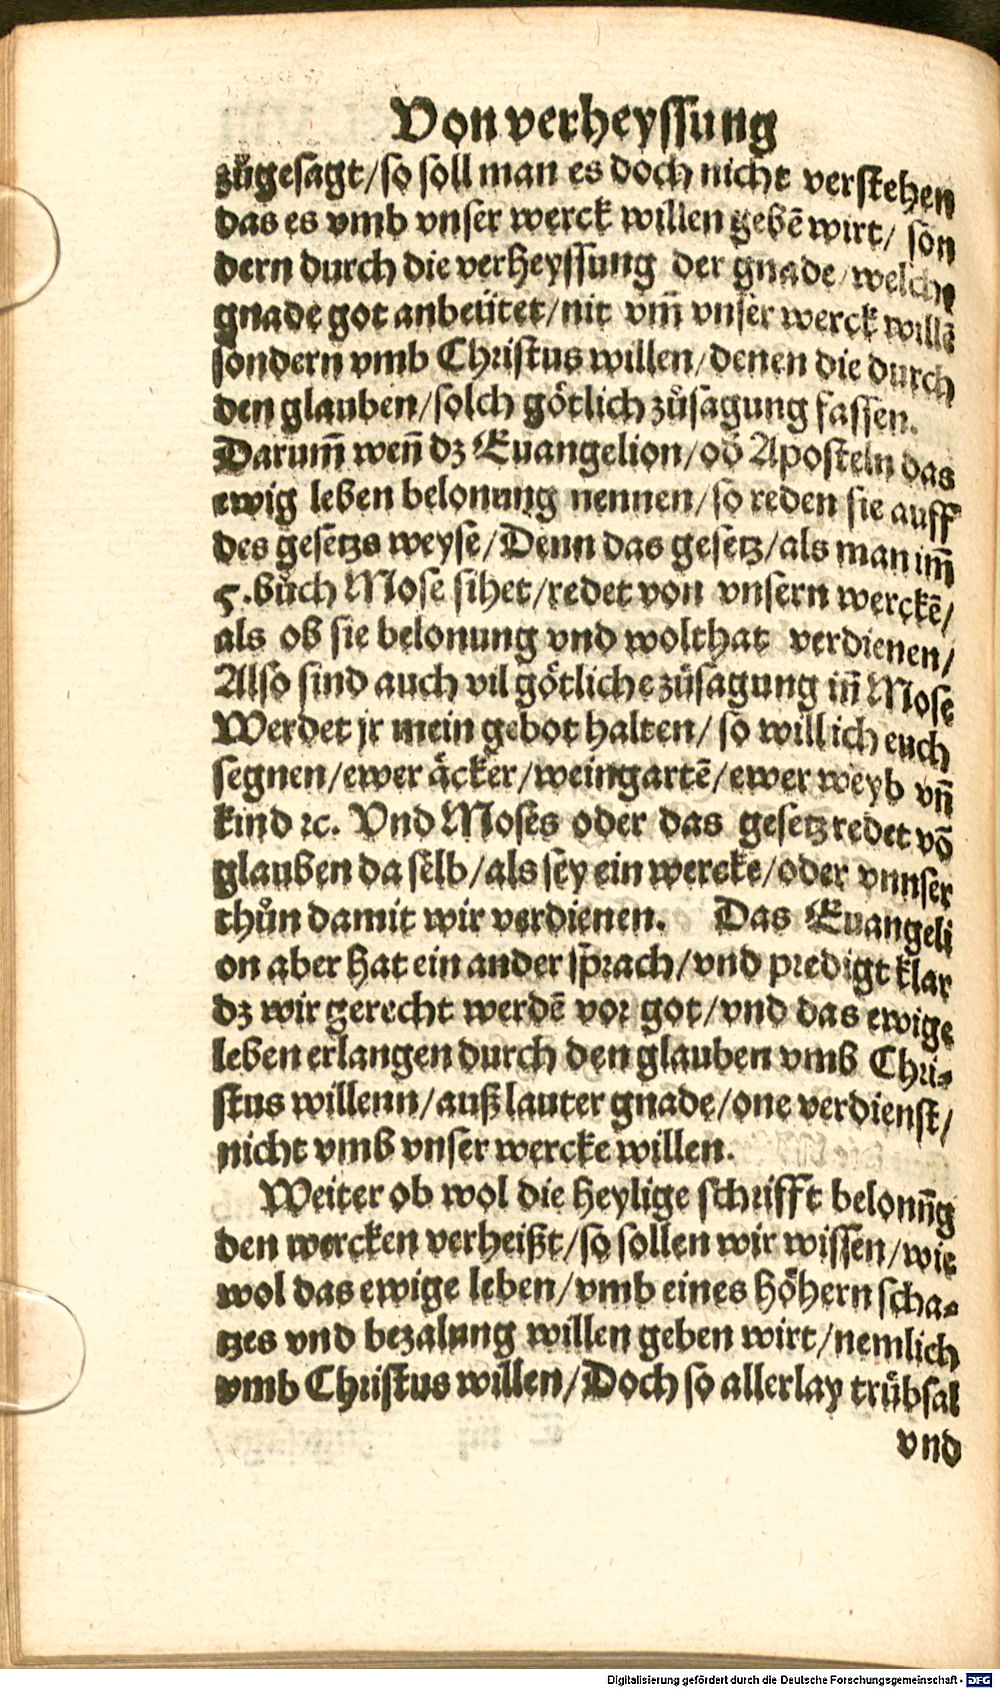 Von verheyssung
zůgesagt/so soll man es doch nicht verstehen
das es vmb vnser werck willen gebē wirt/ son
dern durch die verheyssung der gnade/welche
gnade got anbeütet/nit vm̄ vnser werck willē
sondern vmb Christus willen/denen die durch
den glauben/solch götlich zůsagung fassen.
Darum̄ wen̄ dz Euangelion/od̄ Aposteln das
ewig leben belonung nennen/so reden sie auff
des gesetzs weyse/Denn das gesetz/als man im̄
5.bůch Mose sihet/redet von vnsern werckē/
als ob sie belonung vnd wolthat verdienen/
Also sind auch vil götliche zůsagung in̄ Mose
Werdet jr mein gebot halten/ so will ich euch
segnen/ewer äcker/weingartē/ewer weyb vn̄
kind ꝛc. Vnd Moses oder das gesetz redet vō
glauben da selb/als sey ein wercke/oder vnnser
thůn damit wir verdienen. Das Euangeli
on aber hat ein ander sprach/vnd predigt klar
dz wir gerecht werdē vor got/vnd das ewige
leben erlangen durch den glauben vmb Chri-
stus willenn/auß lauter gnade/one verdienst/
nicht vmb vnser wercke willen.
Weiter ob wol die heylige schrifft belonūg
den wercken verheißt/so sollen wir wissen/wie
wol das ewige leben/vmb eines höhern scha-
tzes vnd bezalung willen geben wirt/nemlich
vmb Christus willen/Doch so allerlay trübsal
vnd
Digitalisierung gefördert durch die Deutsche Forschungsgemeinschaft - DFG